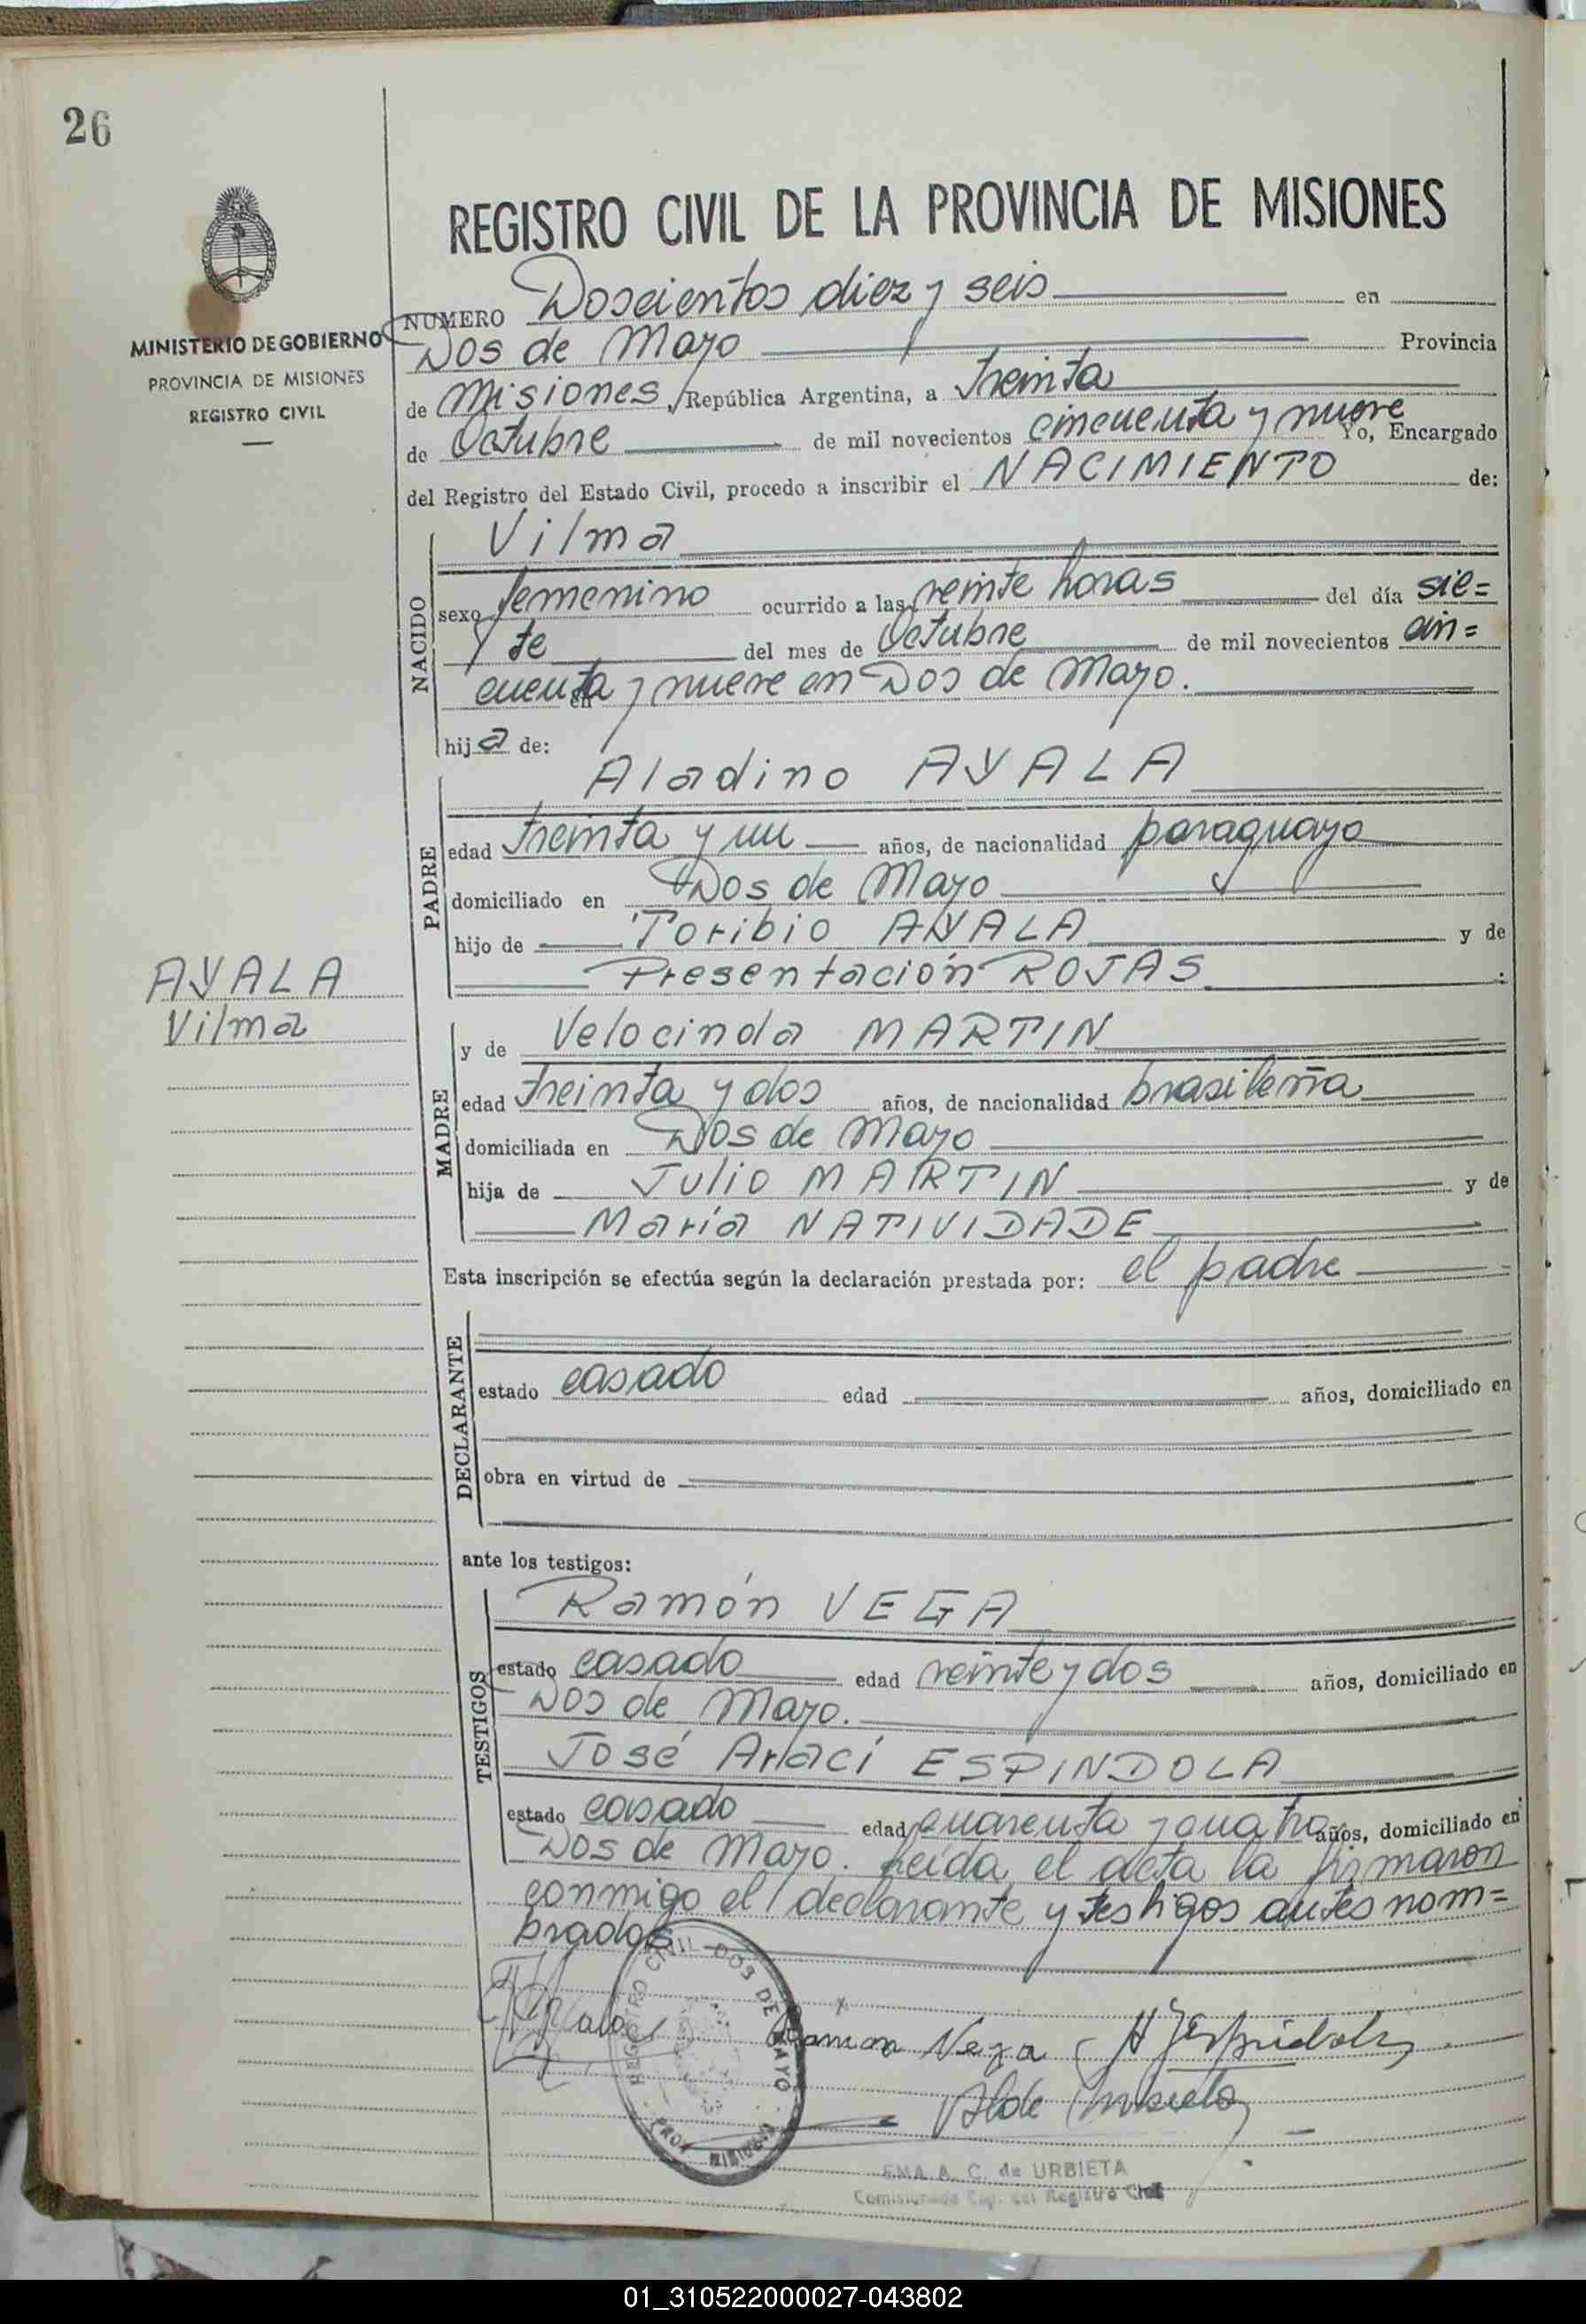 26
MINISTERIO DE GOBIERNO
PROVINCIA DE MISIONES
REGISTRO CIVIL
REGISTRO CIVIL DE LA PROVINCIA DE MISIONES
NUMERO Doscientos diez y seis en
Dos de Mayo Provincia
de Misiones, República Argentina, a treinta
de Octubre de mil novecientos cincuenta y nueve Yo, Encargado
del Registro del Estado Civil, procedo a inscribir el NACIMIENTO de:
NACIDO
Vilma
sexo femenino ocurrido a las veinte horas del día sie=
te del mes de Octubre de mil novecientos cin=
cuenta y nueve en Dos de Mayo.
en
hija de:
PADRE
Aladino AYALA
edad treinta y un años, de nacionalidad paraguayo
domiciliado en Dos de Mayo
hijo de Toribio AYALA y de
Presentación ROJAS :
AYALA
Vilma
MADRE
y de Velocinda MARTIN
edad treinta y dos años, de nacionalidad brasileña
domiciliada en Dos de Mayo
hija de Julio MARTIN y de
María NATIVIDADE
Esta inscripción se efectúa según la declaración prestada por: el padre
DECLARANTE
estado casado edad años, domiciliado en
obra en virtud de
ante los testigos:
TESTIGOS
Ramón VEGA
estado casado edad veinte y dos años, domiciliado en
Dos de Mayo.
José Arací ESPINDOLA
estado casado edad cuarenta y cuatro años, domiciliado en
Dos de Mayo. Leída el acta la firmaron
conmigo el declarante y testigos antes nom=
brados
REGISTRO CIVIL DOS DE MAYO
PROV. MISIONES
Ramon Vega
A. C. de URBIETA
del Registro Civil
01_310522000027-043802